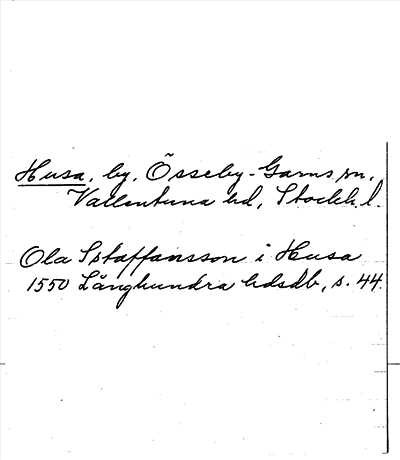 Husa, by, Össeby-Garns sn,
Vallentuna hd, Stockh. l.
Ola Staffansson i Husa
1550 Långhundra hdsdb, s. 44.